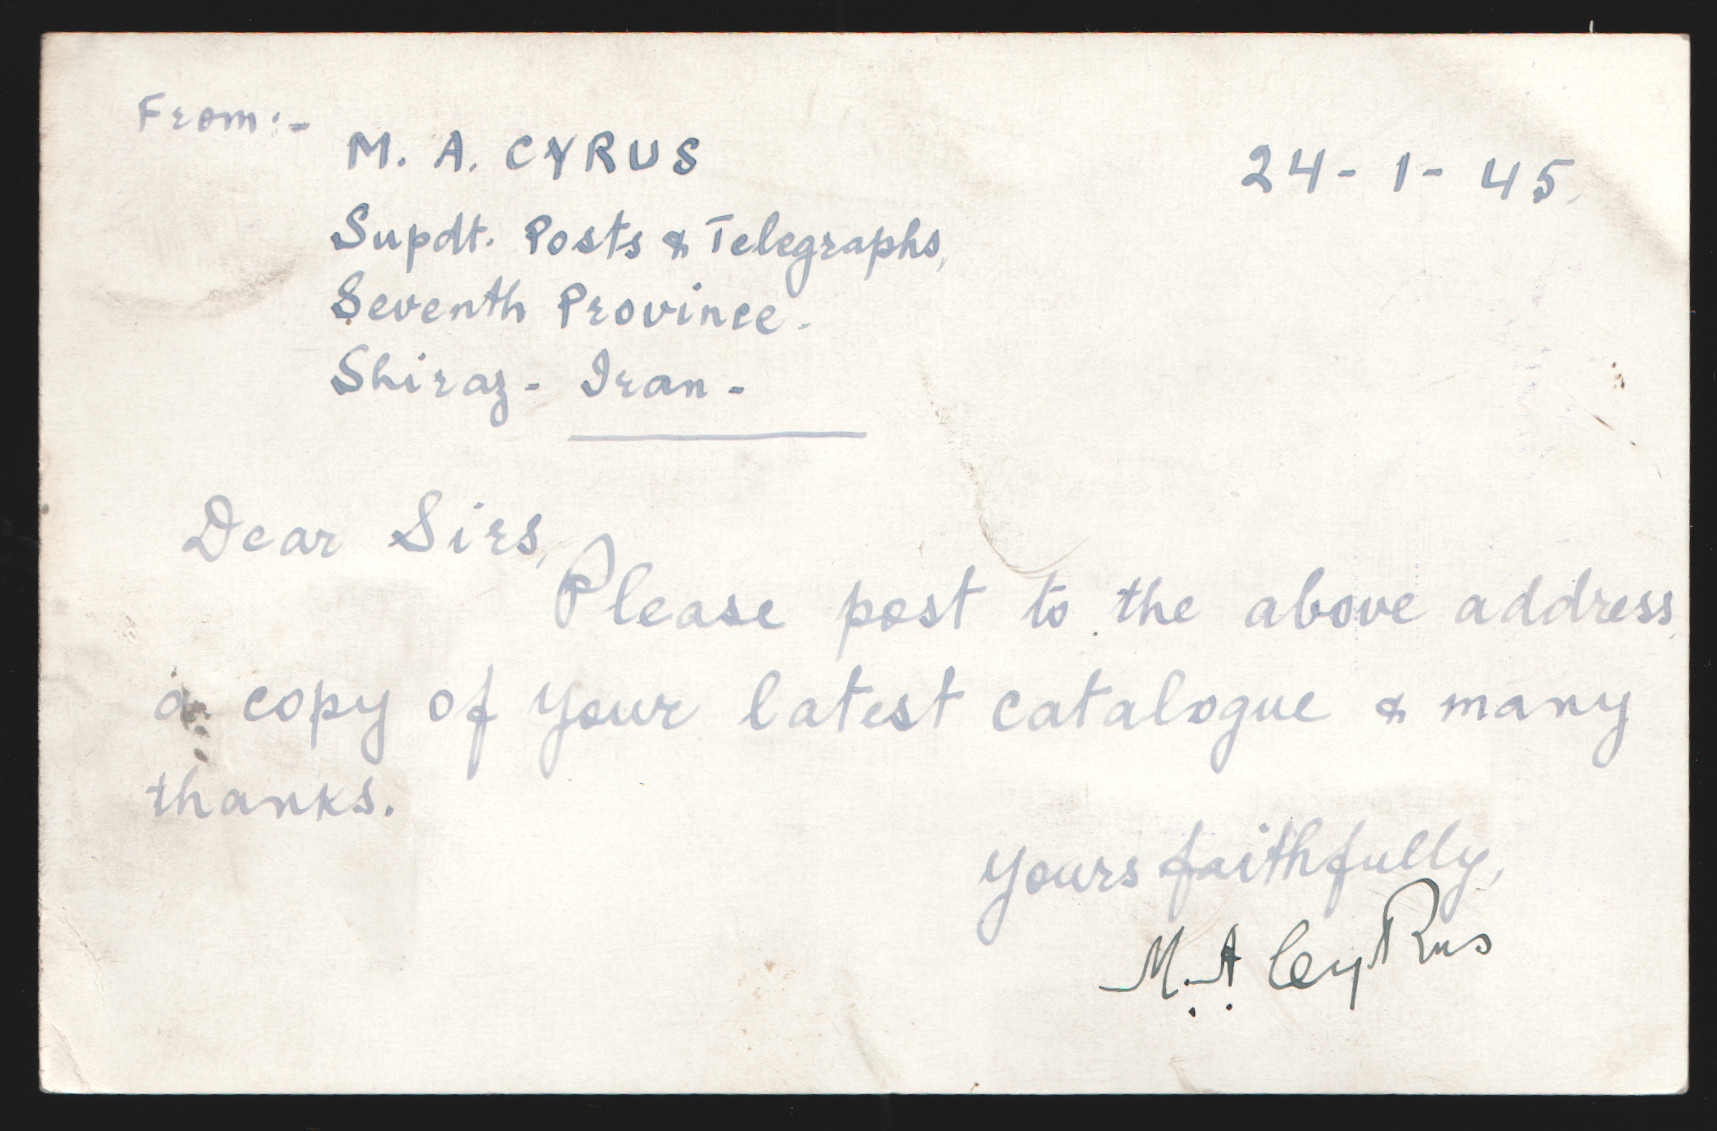 From:-
M. A. CYRUS
24-1-45.
Supdt. Posts & Telegraphs,
Seventh Province.
Shiraz- Iran-
Dear Sirs,
Please post to the above address
a copy of your latest catalogue & many
thanks.
Yours faithfully,
M. A. CyRus